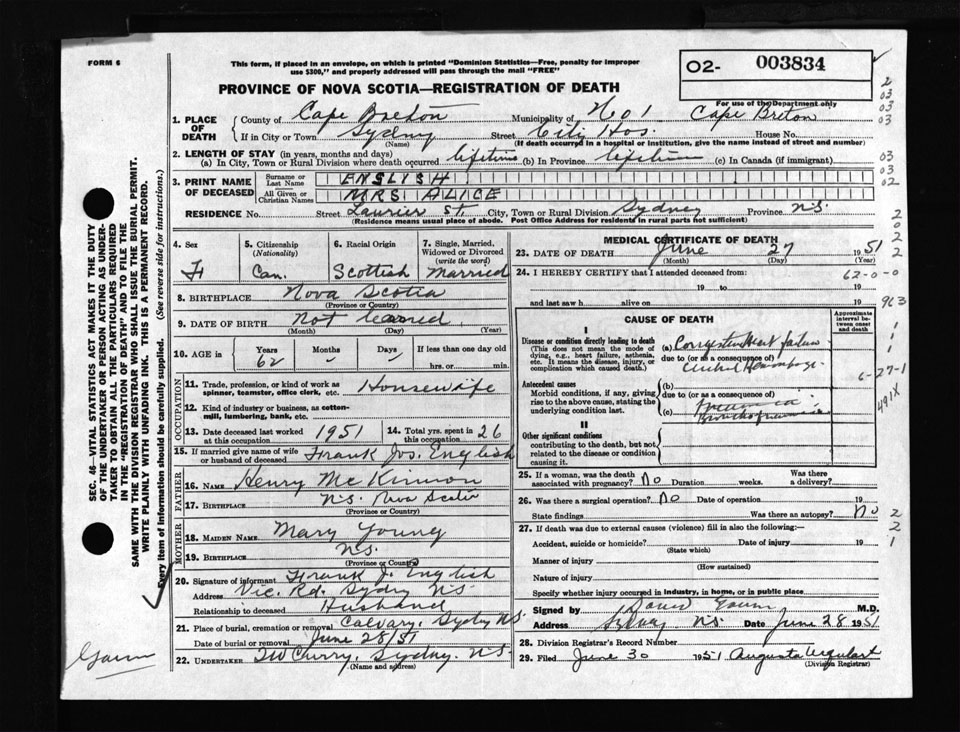 FORM 6
This form, if placed in an envelope, on which is printed "Dominion Statistics—Free, penalty for improper
use $300," and properly addressed will pass through the mail "FREE"
02- 003834
PROVINCE OF NOVA SCOTIA—REGISTRATION OF DEATH
For use of the Department only
1. PLACE OF DEATH
County of Cape Breton Municipality of No 1 Cape Breton
If in City or Town Sydney Street City Hos. House No.
(Name) (If death occurred in a hospital or institution, give the name instead of street and number)
2. LENGTH OF STAY (in years, months and days)
(a) In City, Town or Rural Division where death occurred lifetime (b) In Province lifetime (c) In Canada (if immigrant)
3. PRINT NAME OF DECEASED
Surname or Last Name ENGLISH
All Given or Christian Names MRS. ALICE
RESIDENCE No. Street Laurier St. City, Town or Rural Division Sydney Province N.S.
(Residence means usual place of abode. Post Office Address for residents in rural parts not sufficient)
4. Sex F
5. Citizenship (Nationality) Can.
6. Racial Origin Scottish
7. Single, Married, Widowed or Divorced (write the word) Married
8. BIRTHPLACE Nova Scotia
(Province or Country)
9. DATE OF BIRTH Not
(Month) (Day) (Year)
10. AGE in Years Months Days If less than one day old
62 hrs. or min.
OCCUPATION
11. Trade, profession, or kind of work as spinner, teamster, office clerk, etc. Housewife
12. Kind of industry or business, as cotton-mill, lumbering, bank, etc.
13. Date deceased last worked at this occupation 1951 14. Total yrs. spent in this occupation 26
15. If married give name of wife or husband of deceased Frank Jos. English
FATHER
16. NAME Henry McKinnon
17. BIRTHPLACE N.S. Nova Scotia
(Province or Country)
MOTHER
18. MAIDEN NAME Mary Young
19. BIRTHPLACE N.S.
(Province or Country)
20. Signature of informant Frank J. English
Address Vic. Rd. Sydney N.S
Relationship to deceased Husband
21. Place of burial, cremation or removal Calvary, Sydney N.S.
Date of burial or removal June 28/51
22. UNDERTAKER TW Curry, Sydney. N.S.
(Name and address)
MEDICAL CERTIFICATE OF DEATH
23. DATE OF DEATH June 27 1951
(Month) (Day)
24. I HEREBY CERTIFY that I attended deceased from:
19 to 19
and last saw h alive on 19
CAUSE OF DEATH
Approximate interval between onset and death
I
Disease or condition directly leading to death
(This does not mean the mode of dying, e.g., heart failure, asthenia, etc. It means the disease, injury, or complication which caused death.)
(a) Congestive Heart failure
due to (or as a consequence of)
Antecedent causes
Morbid conditions, if any, giving rise to the above cause, stating the underlying condition last.
(b)
due to (or as a consequence of)
(c)
II
Other significant conditions
contributing to the death, but not related to the disease or condition causing it.
25. If a woman, was the death associated with pregnancy? No Duration weeks. Was there a delivery?
26. Was there a surgical operation? No Date of operation 19
State findings Was there an autopsy? No
27. If death was due to external causes (violence) fill in also the following:—
Accident, suicide or homicide? Date of injury 19
(State which)
Manner of injury
(How sustained)
Nature of injury
Specify whether injury occurred in industry, in home, or in public place
Signed by M.D.
Address Sydney N.S. Date June 28 1951
28. Division Registrar's Record Number
29. Filed June 30 1951 Augusta Urquhart
(Division Registrar)
SEC. 46—VITAL STATISTICS ACT MAKES IT THE DUTY
OF THE UNDERTAKER OR PERSON ACTING AS UNDER-
TAKER TO OBTAIN ALL THE PARTICULARS REQUIRED
IN THE "REGISTRATION OF DEATH" AND TO FILE THE
SAME WITH THE DIVISION REGISTRAR WHO SHALL ISSUE THE BURIAL PERMIT.
WRITE PLAINLY WITH UNFADING INK. THIS IS A PERMANENT RECORD.
Every item of information should be carefully supplied. (See reverse side for instructions.)
2
03
03
03
03
03
02
2
0
2
2
62-0-0
963
1
1
1
6-27-1
491X
2
2
1